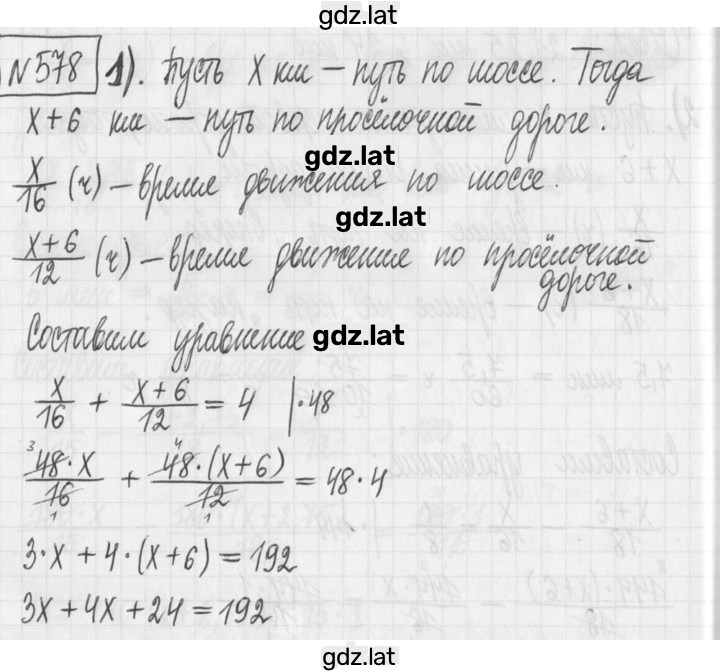 gdz.lat
№578 1). Пусть x км – путь по шоссе. Тогда
x+6 км – путь по просёлочной дороге.
gdz.lat
x/16 (ч) – время движения по шоссе.
gdz.lat
(x+6)/12 (ч) – время движение по просёлочной
дороге.
Составим уравнение
gdz.lat
x/16 + (x+6)/12 = 4 |·48
3 4
48·x/16 + 48·(x+6)/12 = 48·4
1 1
3·x + 4·(x+6) = 192
3x + 4x + 24 = 192
gdz.lat